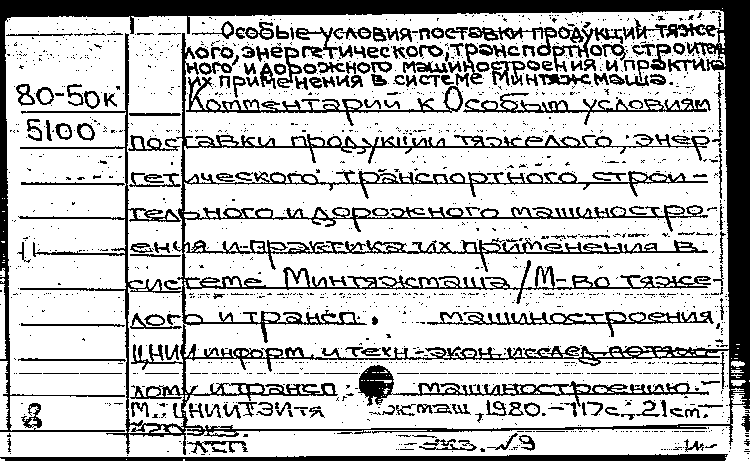 Особые условия поставки продукции тяже-
лого, энергетического, транспортного, строитель
ного, и дорожного машиностроения и практика
их применения в системе Минтяжмаша.
80-50к
5100
Комментарий к Особым условиям
поставки продукции тяжелого, энер-
гетического, транспортного, строи-
тельного и дорожного машиностро-
ения и практика их применения в
системе Минтяжмаша / М-во тяже-
лого и трансп. машиностроения,
ЦНИИ информ. и техн.-экон. исслед. по тяже-
лому и трансп. машиностроению.-
8
М.: ЦНИИТЭИтяжмаш, 1980.-117с.; 21см.
420 экз.
ЛСП экз.-№9